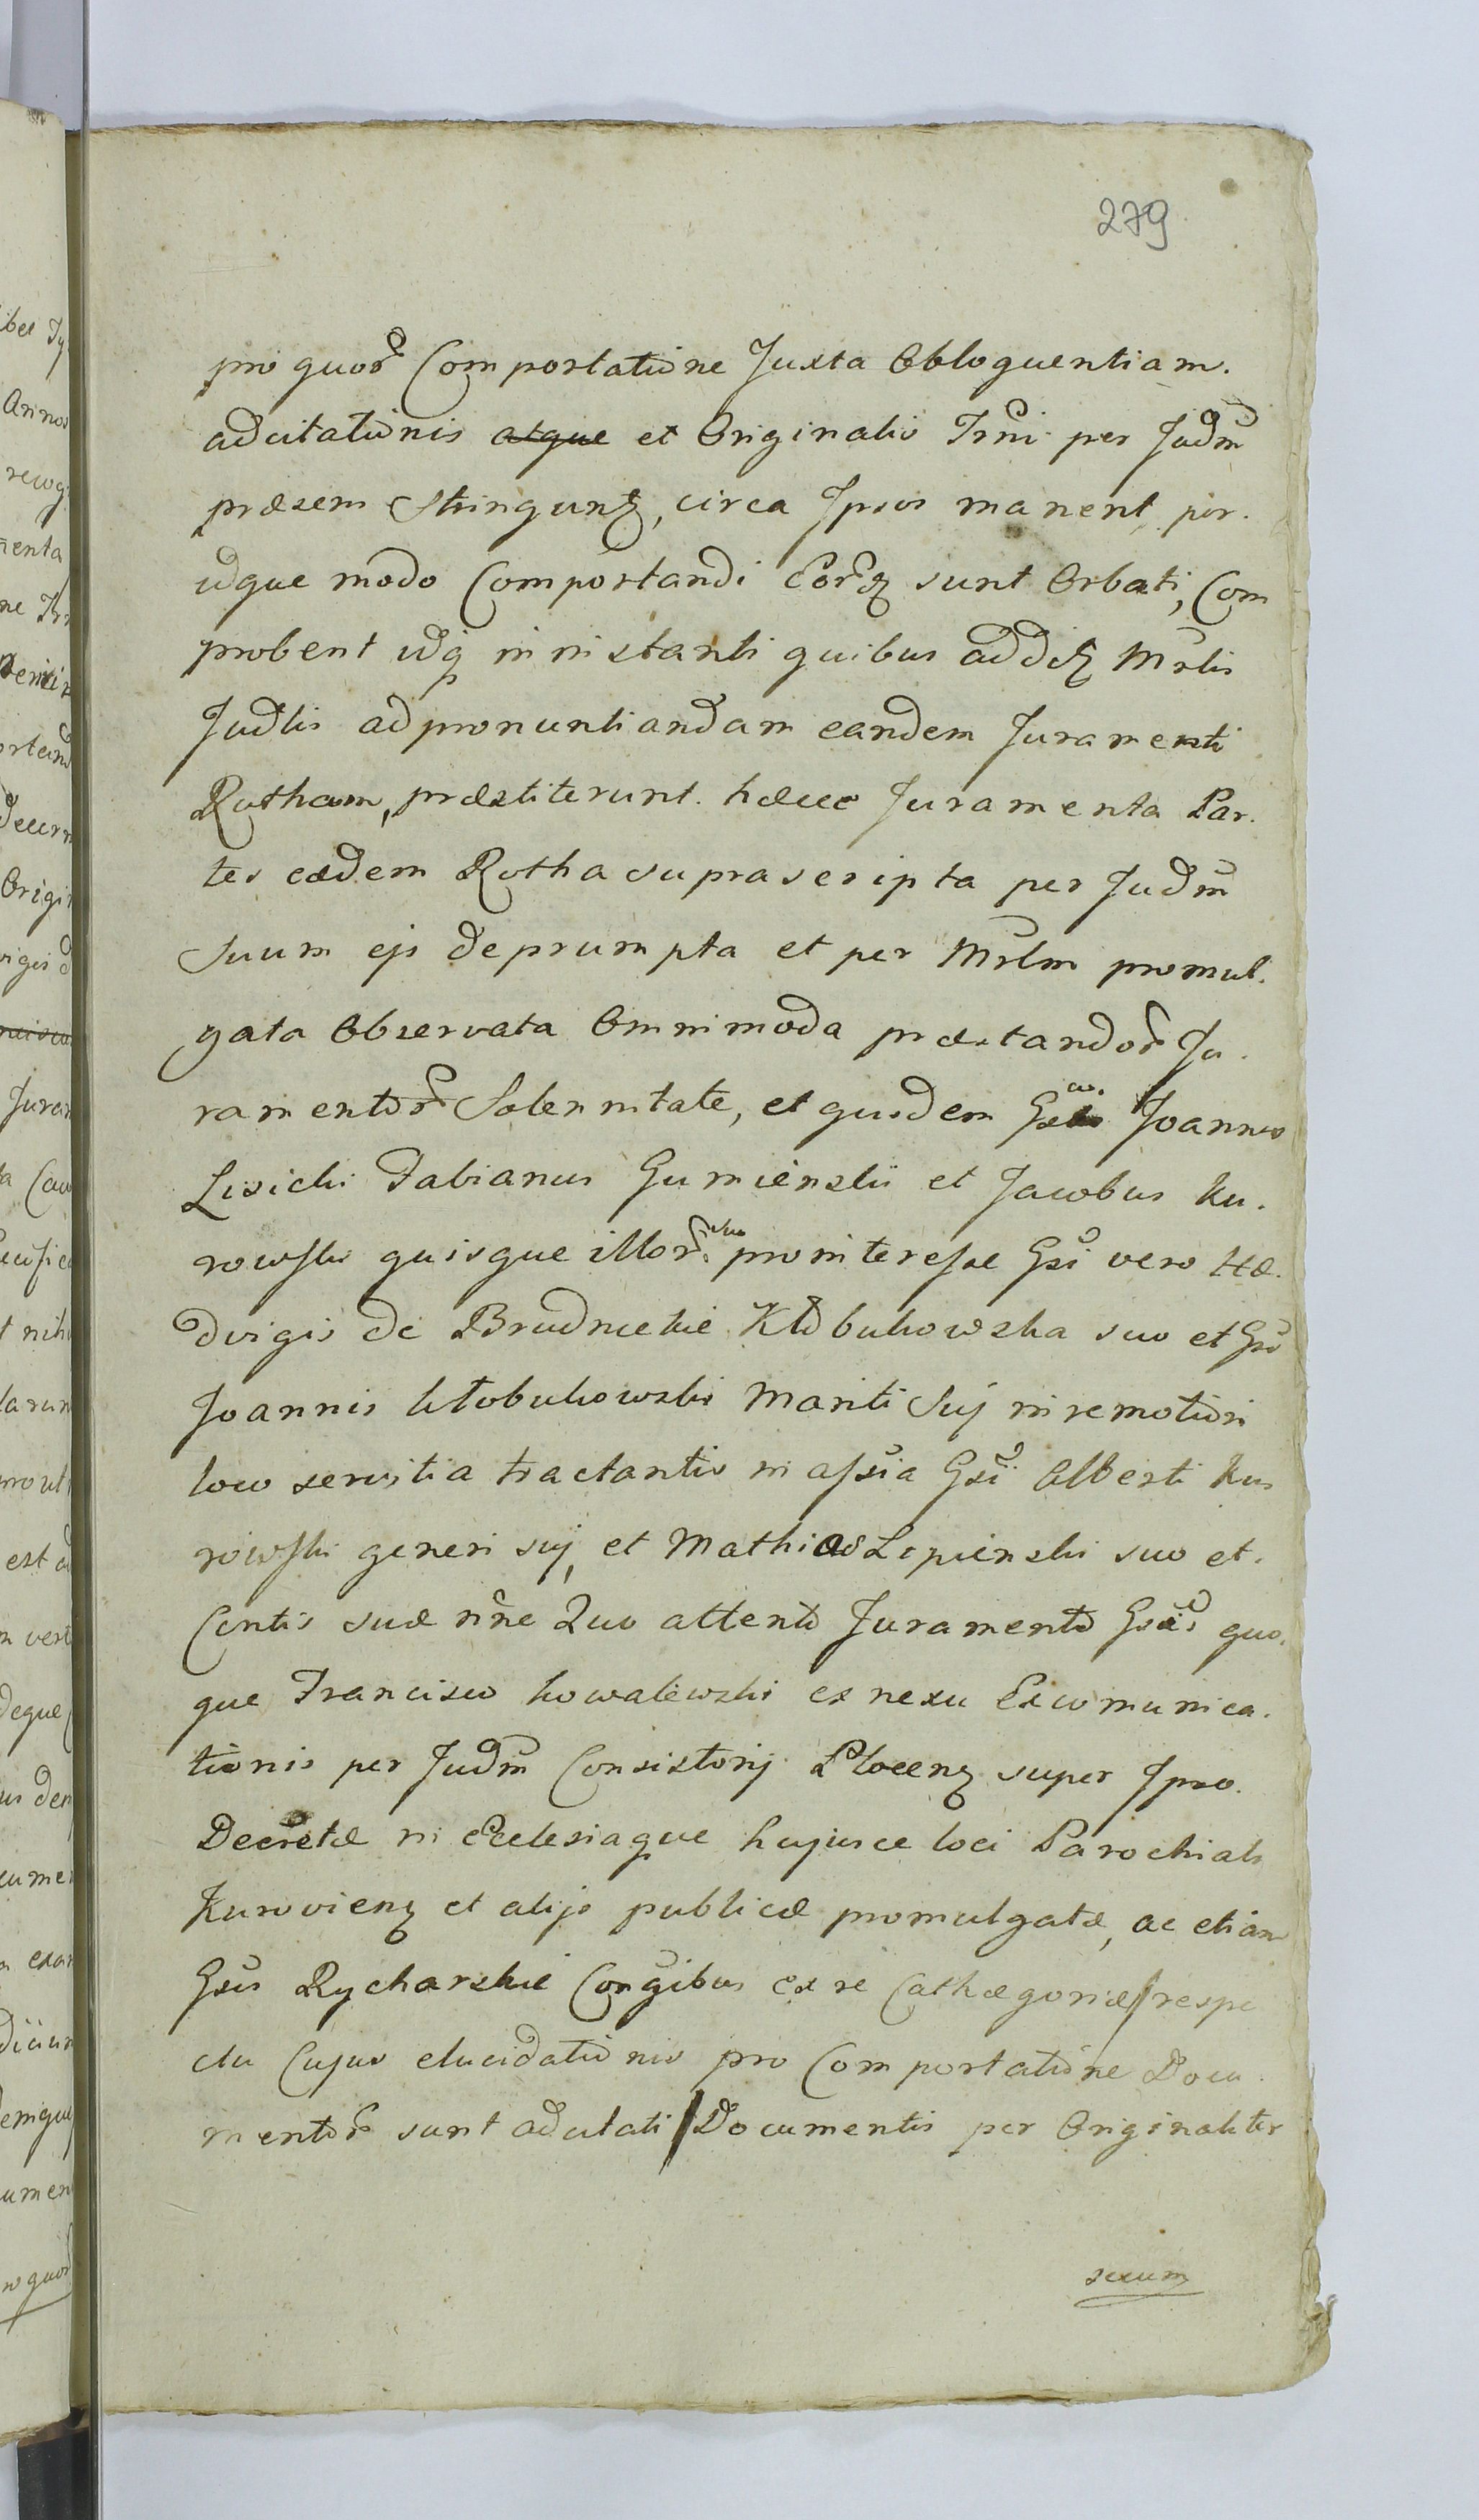 279
pro quor Comportatione Juxta Obloquentiam.
adcitationis atque et Originalis Trni per Judm
præsens Stringunt, circa Ipsos manent per.
idque modo Comportandi Eorq sunt Orbati, Com
probent idq in instanti quibus addit Mrlis
Judlis ad pronuntiandam eandem Juramenti
Rotham, præstiterunt. hæcce Juramenta Par.
tes eædem Rotha suprascripta per Judm
suum ejs deprumpta et per Mrlm promul.
gata Observata Omnimoda præstandor Ju.
ramentor Solennitate, et quidem Gsi Joannes
Lisicki Fabianus Gumienskii et Jacobus Ku.
rowski quisque illor suo pro interesse Gsi vero Hæ.
dvigis de Brudnickie Kłobukowska suo et Gsi
Joannis Kłobukowski Mariti Suj in remotiori
loco servitia tractantis in assia Gsi Alberti Ku
rowski generi suj, et Mathias Lipienski suo et
Contis suæ nne Quo attento Juramento Gsis quo.
que Francisco Kowalewski ex nexu Excomunica.
tionis per Judm Consistorij Plocens super Ipso.
Decretæ in Ecclesiaque hujusce loci Parochiali
Kuroviens et alijs publicæ promulgatæ, ac etiam
Gsis Rycharskie Congibus ex re Cathægoriæ/ respe
ctu Cujus elucidationis pro Comportatione Docu.
mentor sunt adcitati/ Documentis per Originaliter